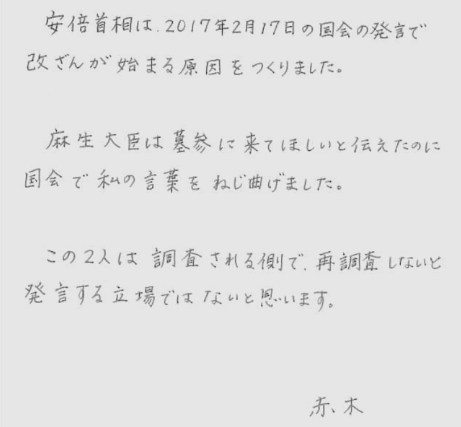 安倍首相は、2017年2月17日の国会の発言で
改ざんが始まる原因をつくりました。
麻生大臣は墓参に来てほしいと伝えたのに
国会で私の言葉をねじ曲げました。
この2人は調査される側で、再調査しないと
発言する立場ではないと思います。
赤木